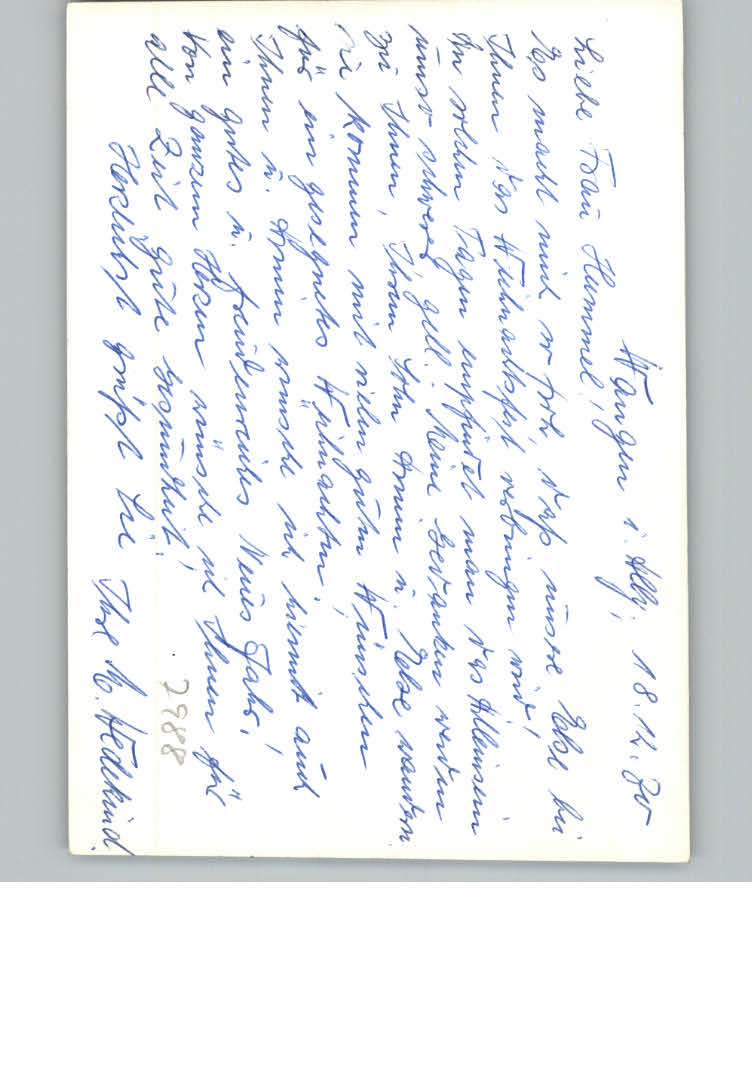 Wangen i. Allg. 18.12.80
Liebe Frau Hummel!
Es macht mich so froh, daß unsre Else bei
Ihnen das Weihnachtsfest verbringen wird!
An solchen Tagen empfindet man das Alleinsein
umso schwerer, gell. Meine Gedanken werden
zu Ihnen, Ihrem Sohn Armin u. Else wandern.
Sie kommen mit vielen guten Wünschen
für ein gesegnetes Weihnachten!
Ihnen u. Armin wünsche ich hiermit auch
ein gutes u. freudenreiches Neues Jahr!
Von ganzem Herzen wünsche ich Ihnen für
alle Zeit gute Gesundheit!
Herzlichst grüßt Sie Ihre M. Wedekind.
7988